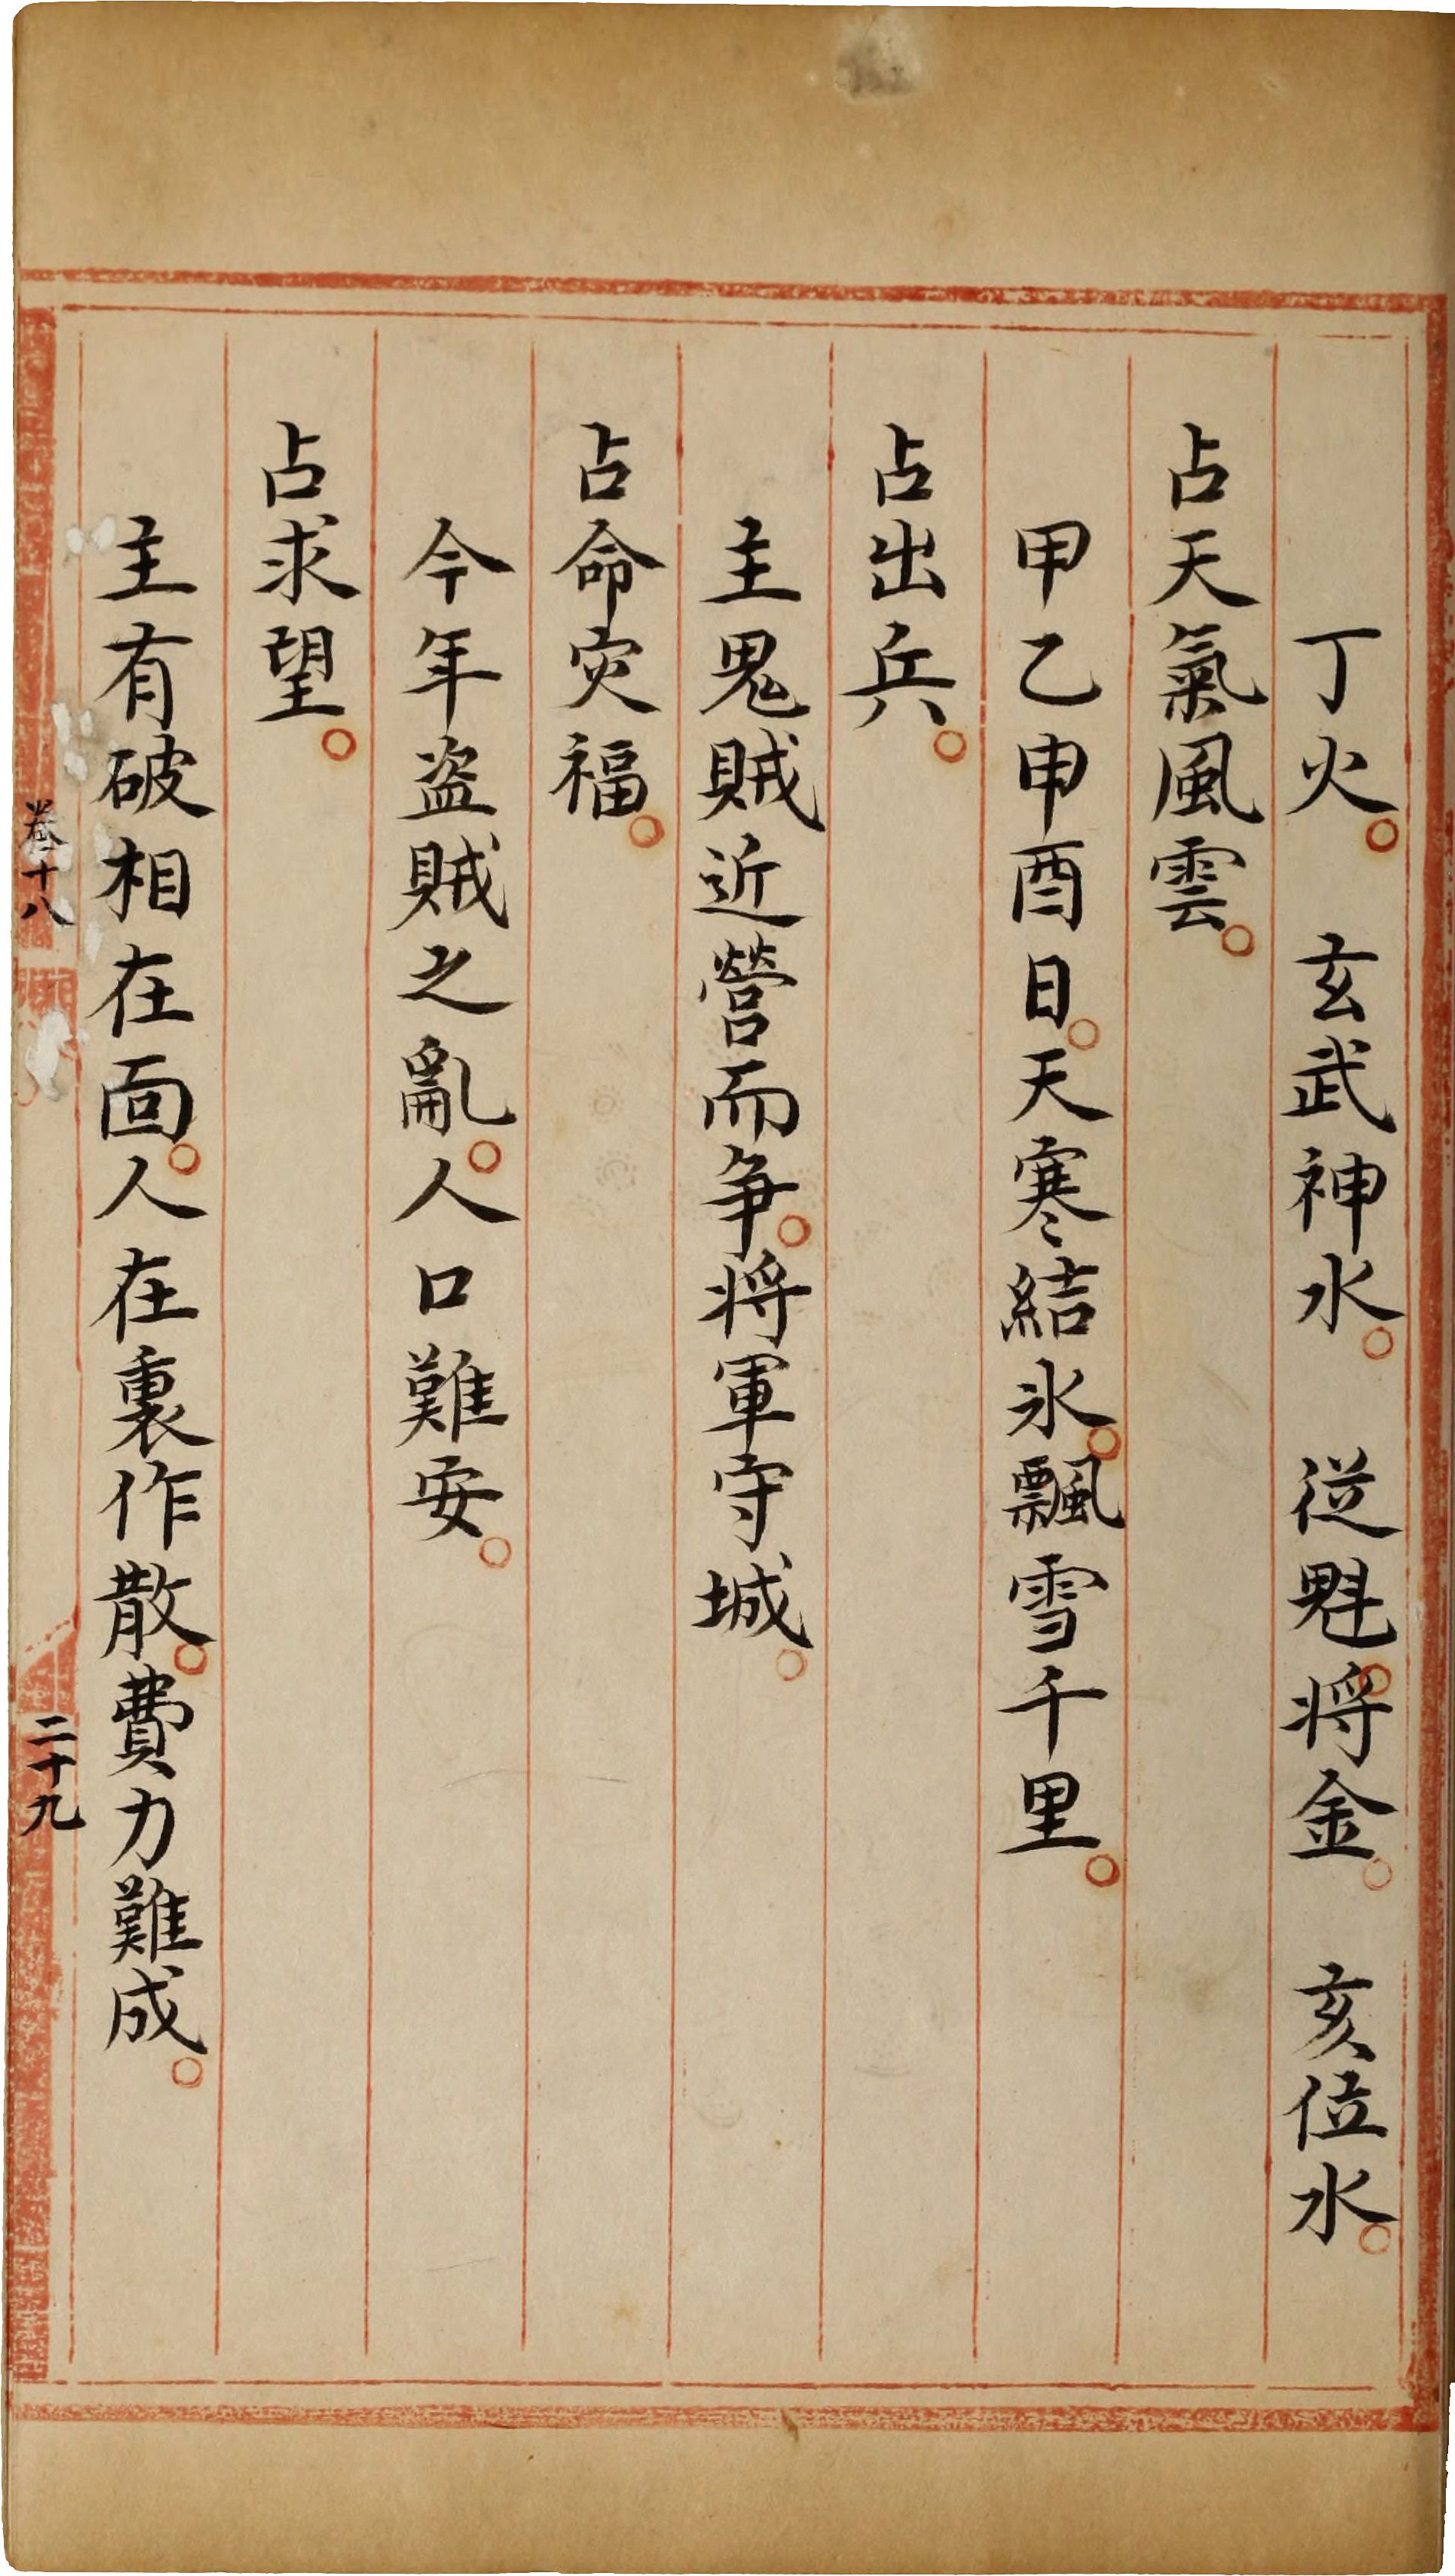 丁火。　玄武神水。　従魁。将金。　亥位水。
占天氣風雲。
甲乙申酉日。天寒結氷。飄雪千里。
占出兵。
主鬼賊近營而争。将軍守城。
占命灾福。
今年盗賊之亂。人口難安。
占求望。
主有破相在面。人在裏作散。費力難成。
卷十八
二十九